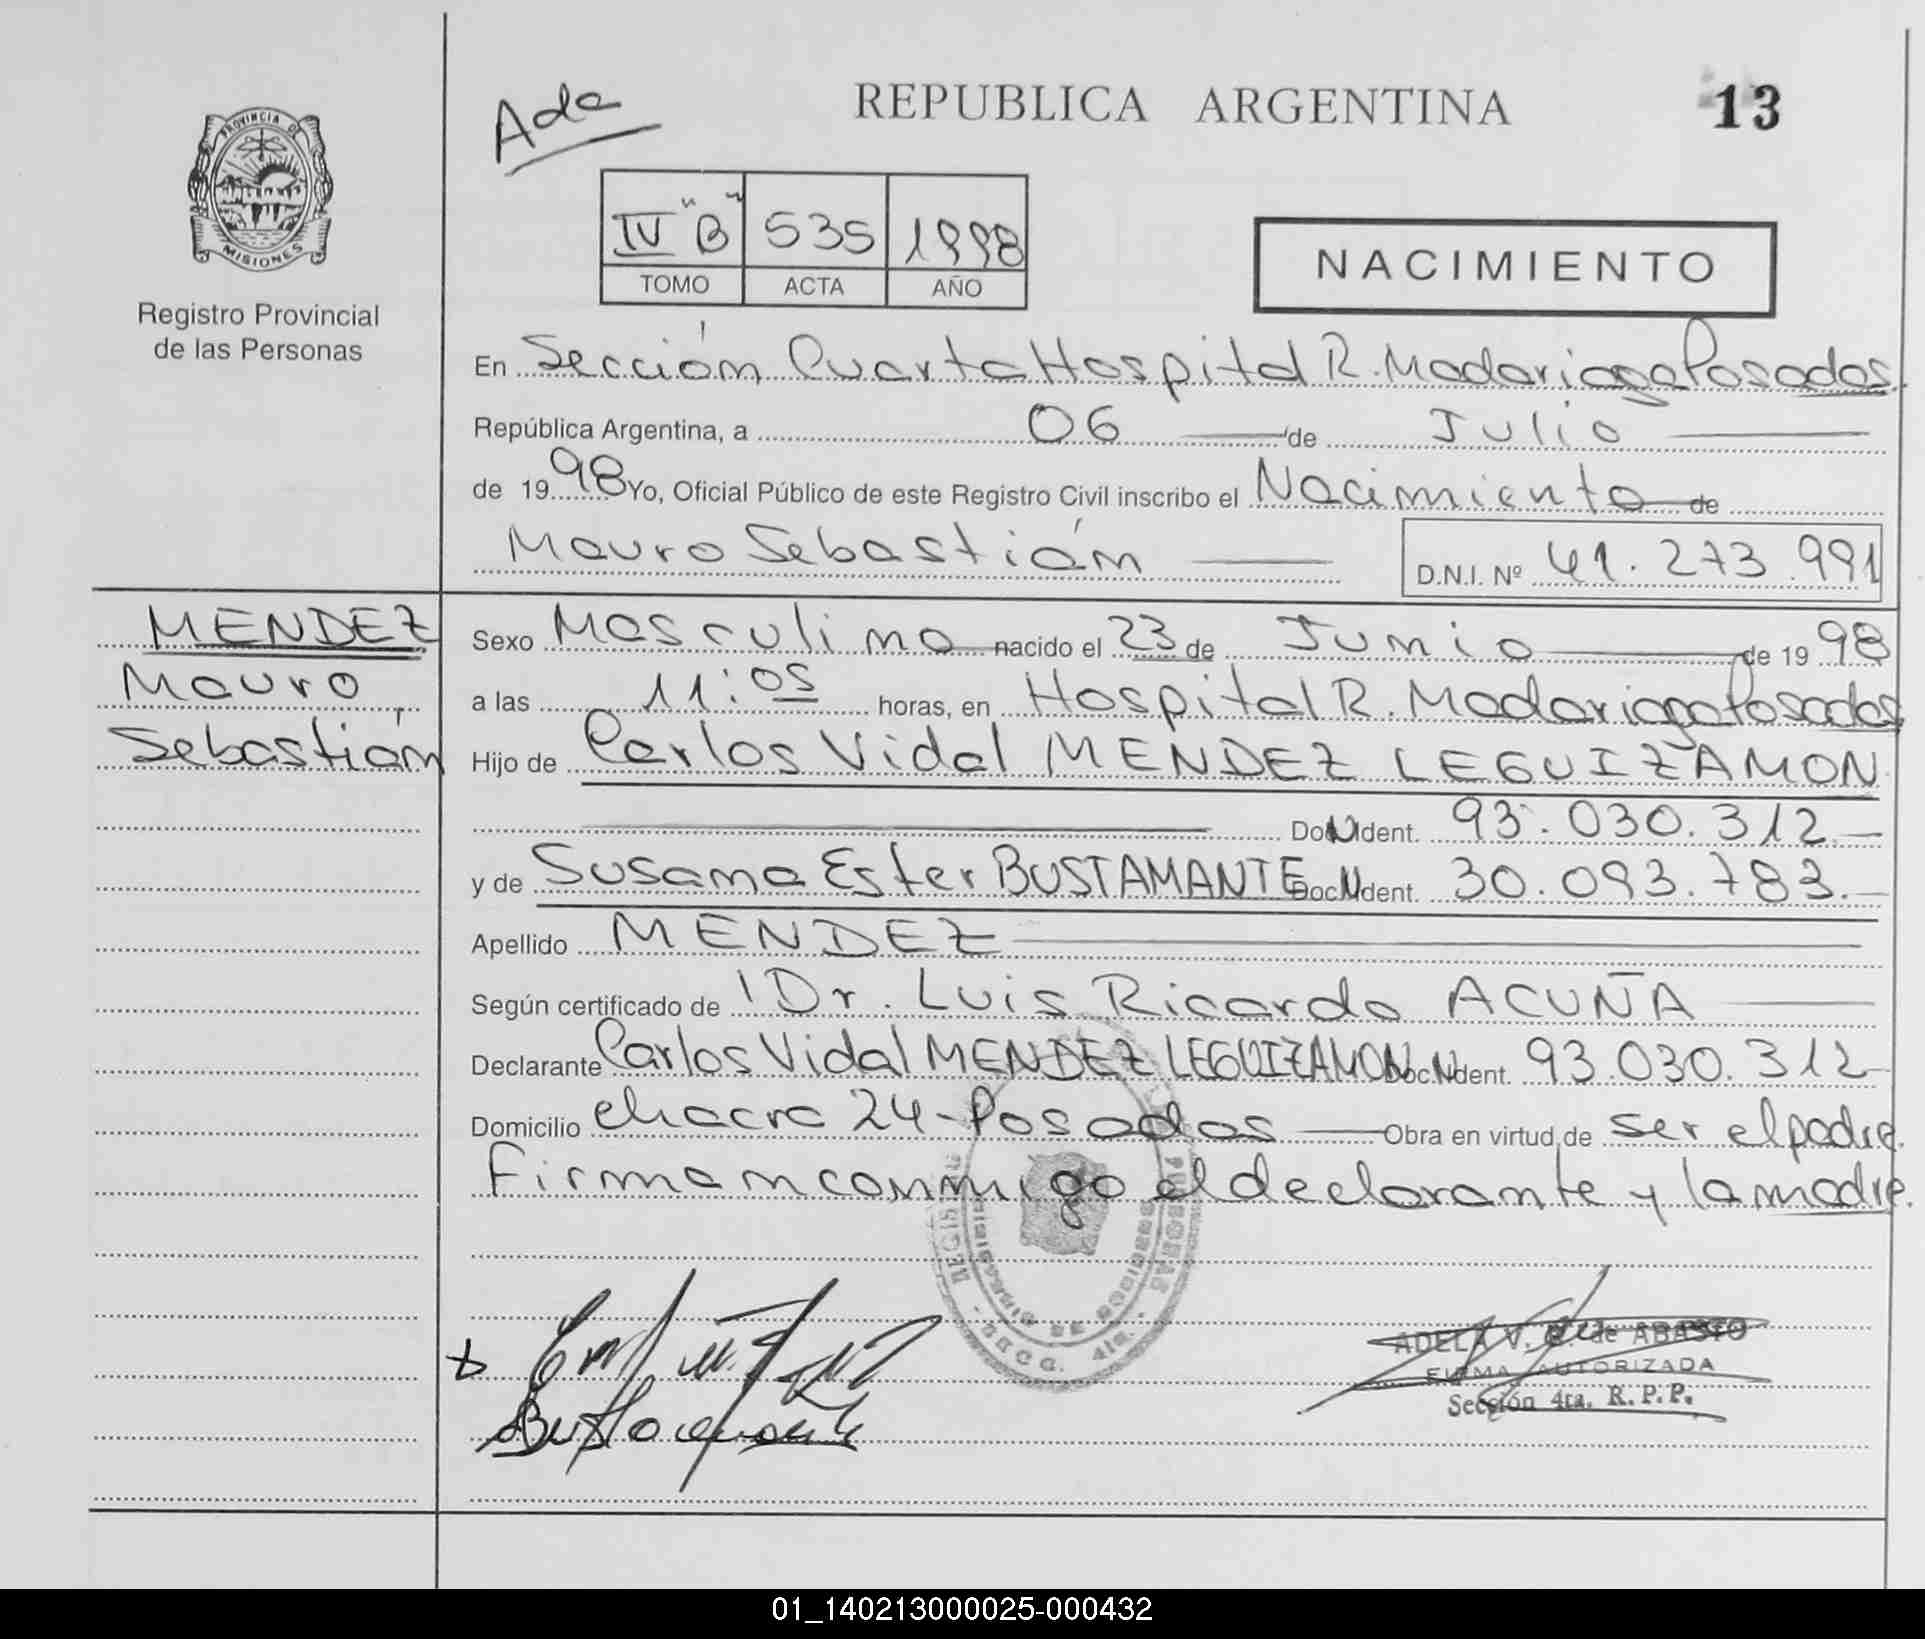 REPUBLICA ARGENTINA
13
Ada
PROVINCIA DE
MISIONES
Registro Provincial
de las Personas
IV "B" 535 1998
TOMO ACTA AÑO
NACIMIENTO
En Sección Cuarta Hospital R. Madariaga Posadas.
República Argentina, a 06 de Julio
de 1998 Yo, Oficial Público de este Registro Civil inscribo el Nacimiento de
Mauro Sebastián
D.N.I. Nº 41.273.991
MENDEZ
Mauro
Sebastián
Sexo Masculino nacido el 23 de Junio de 1998
a las 11:05 horas, en Hospital R. Madariaga Posadas
Hijo de Carlos Vidal MENDEZ LEGUIZAMON
Doc. Ident. 93.030.312.
y de Susana Ester BUSTAMANTE Doc. Ident. 30.093.783.
Apellido MENDEZ
Según certificado de Dr. Luis Ricardo ACUÑA
Declarante Carlos Vidal MENDEZ LEGUIZAMON Doc. Ident. 93.030.312
Domicilio chacra 24 - Posadas Obra en virtud de ser el padre.
Firman conmigo el declarante y la madre.
ADELA V. de ABASTO
FIRMA AUTORIZADA
Sección 4ta. R. P. P.
01_140213000025-000432